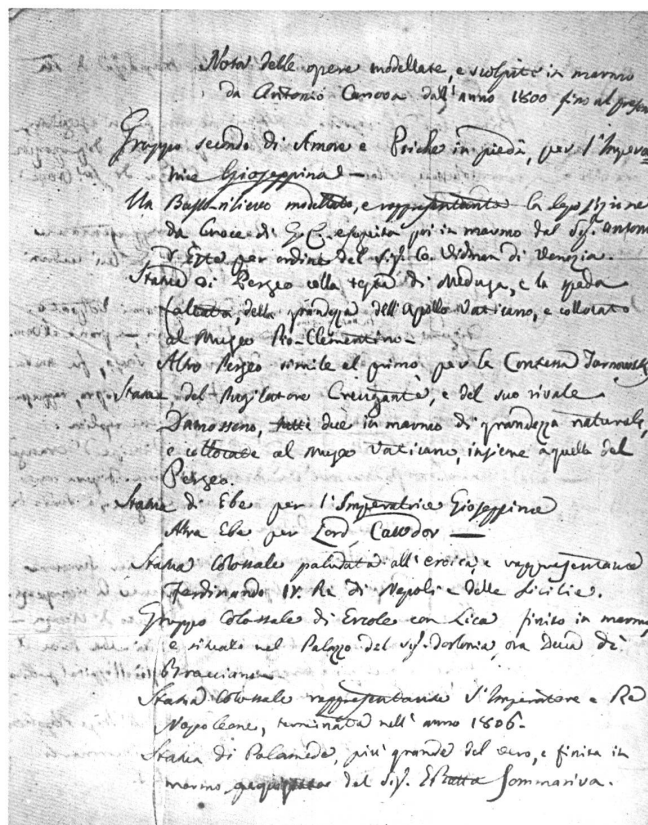 Nota delle opere modellate, e scolpite in marmo
da Antonio Canova dall'anno 1800 fino al presen
Gruppo secondo di Amore e Psiche in piedi, per l'Impera
trice Gioseppina —
Un Basso-rilievo modellato, e rappresentante la deposizione
da Croce di G. C. eseguita poi in marmo dal Sig. Antoni
d'Este per ordine del Sig. Co. Widman di Venezia.
Statua di Perseo colla testa di Meduga, e la spada
falcata, della grandezza dell'Apollo Vaticano, e collocato
al Museo Pio-Clementino.
Altro Perseo simile al primo per la Contessa Tarnowsky
Statua del Pugilatore Creugante, e del suo rivale
Damosseno, tutti due in marmo di grandezza naturale,
e collocate al Museo Vaticano, insieme a quella del
Perseo.
Statua di Ebe per l'Imperatrice Gioseppina
Altra Ebe per Lord Cawdor —
Statua Colossale paludata all'eroica, e rappresentante
Ferdinando IV. Re di Napoli e delle Sicilie.
Gruppo Colossale di Ercole con Lica finito in marmo
e situato nel Palazzo del Sig. Torlonia, ora Duca di
Bracciano
Statua Colossale rappresentante l'Imperatore e Re
Napoleone, terminata nell'anno 1806.
Statua di Palamede, più grande del vero, e finita in
marmo, dal Sig. Sommariva.